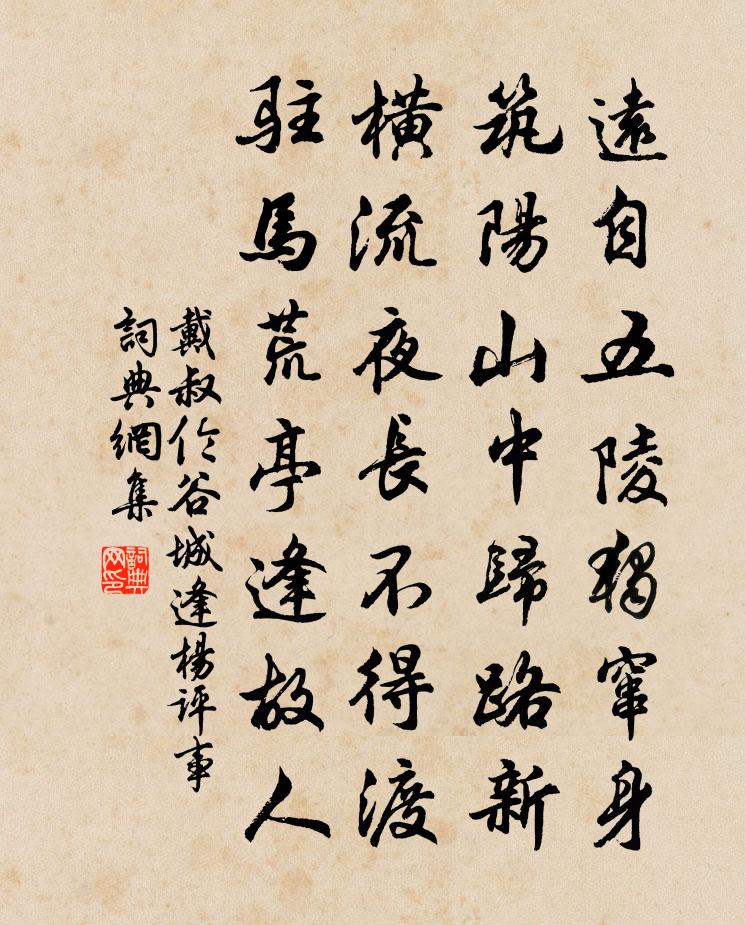 遠自五陵獨竄身
筑陽山中歸路新
橫流夜長不得渡
駐馬荒亭逢故人
戴叔伦谷城逢楊评事
詞典網集
詞典网印